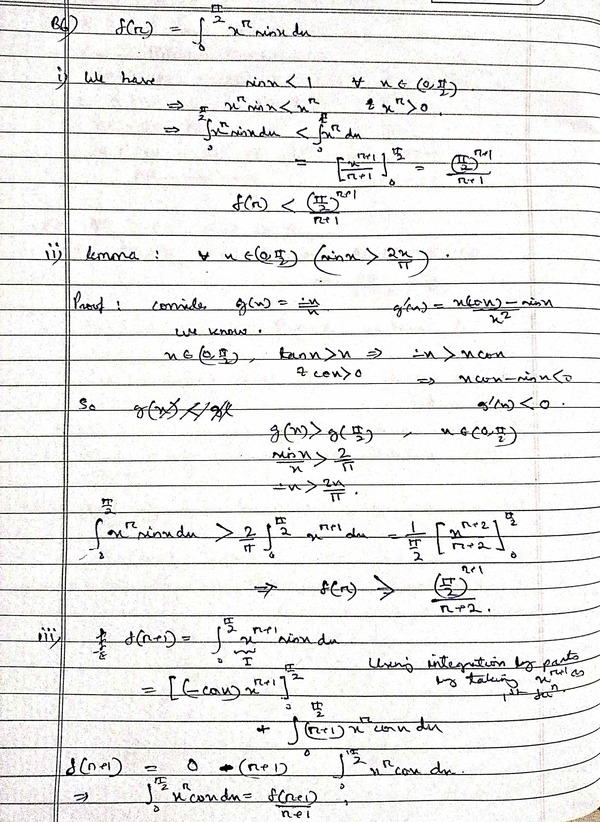 B6) f(n) = ∫₀^{π/2} xⁿ sinx dx
i) We have sinx < 1 ∀ x ∈ (0, π/2)
⇒ xⁿ sinx < xⁿ & xⁿ > 0.
⇒ ∫₀^{π/2} xⁿ sinx dx < ∫₀^{π/2} xⁿ dx
= [x^{n+1}/(n+1)]₀^{π/2} = (π/2)^{n+1}/(n+1)
f(n) < (π/2)^{n+1}/(n+1)
ii) Lemma : ∀ x ∈ (0, π/2) (sinx > 2x/π).
Proof : consider g(x) = sinx/x g'(x) = (x cosx − sinx)/x²
we know.
x ∈ (0, π/2), tanx > x ⇒ sinx > x cosx
& cosx > 0 ⇒ x cosx − sinx < 0
So g'(x) < 0.
g(x) > g(π/2) , x ∈ (0, π/2)
sinx/x > 2/π
sinx > 2x/π.
∫₀^{π/2} xⁿ sinx dx > 2/π ∫₀^{π/2} x^{n+1} dx = 1/(π/2) [x^{n+2}/(n+2)]₀^{π/2}
⇒ f(n) > (π/2)^{n+1}/(n+2).
iii) f(n+1) = ∫₀^{π/2} x^{n+1} sinx dx
I
Using integration by parts
by taking x^{n+1} as
1st fnⁿ.
= [(−cosx) x^{n+1}]₀^{π/2}
+ ∫₀^{π/2} (n+1) xⁿ cosx dx
f(n+1) = 0 + (n+1) ∫₀^{π/2} xⁿ cosx dx.
⇒ ∫₀^{π/2} xⁿ cosx dx = f(n+1)/(n+1) ;